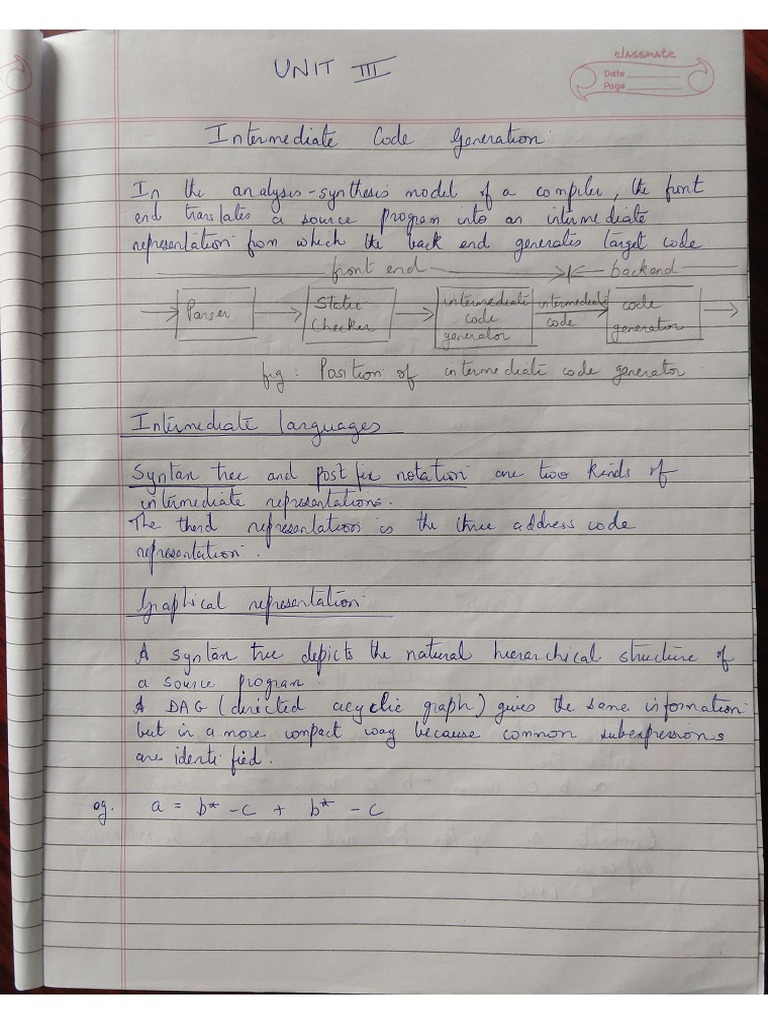 classmate
Date
Page
UNIT III
Intermediate Code Generation
In the analysis-synthesis model of a compiler, the front
end translates a source program into an intermediate
representation from which the back end generates target code
front end backend
Parser Static Checker intermediate code generator intermediate code code generation
fig: Position of intermediate code generator
Intermediate languages
Syntan tree and post fix notation are two kinds of
intermediate representations.
The third representation is the three address code
representation.
Graphical representation
A syntan tree depicts the natural hierarchical structure of
a source program.
A DAG (directed acyclic graph) gives the same information
but in a more compact way because common subexpressions
are identified.
eg. a = b* -c + b* - c